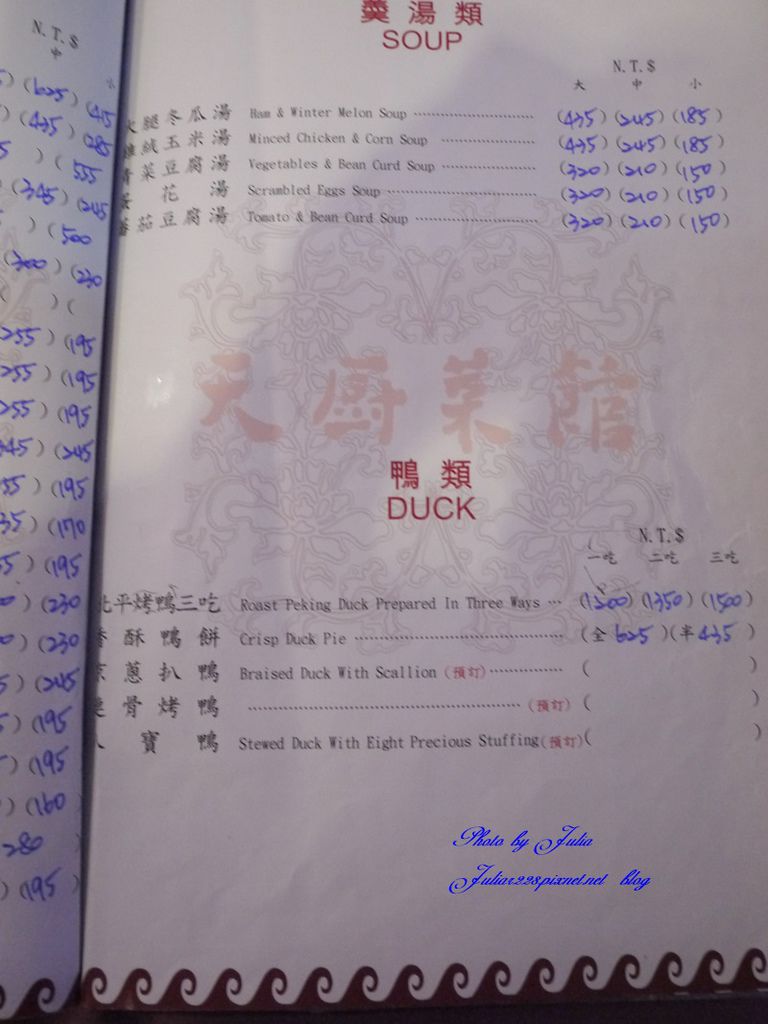 N.T.$
中 小
(625) (415
(435) (285
) ( 555
(345) (245
) (500
(300) (230
( ) (
255) (195
255) (195
255) (195
345) (245
55) (195
35) (170
5) (195
) (230
) (230
5) (245
5) (195
) (195
) (160
280
) (195
羹湯類
SOUP
N.T.$
大 中 小
火腿冬瓜湯 Ham & Winter Melon Soup (435) (245) (185)
雞絨玉米湯 Minced Chicken & Corn Soup (435) (245) (185)
青菜豆腐湯 Vegetables & Bean Curd Soup (320) (210) (150)
蛋花湯 Scrambled Eggs Soup (320) (210) (150)
蕃茄豆腐湯 Tomato & Bean Curd Soup (320) (210) (150)
天廚菜館
鴨類
DUCK
N.T.$
一吃 二吃 三吃
北平烤鴨三吃 Roast Peking Duck Prepared In Three Ways (1200) (1350) (1500)
香酥鴨餅 Crisp Duck Pie (全 625) (半 435)
京蔥扒鴨 Braised Duck With Scallion (預訂) ( )
骨烤鴨 (預訂) ( )
八寶鴨 Stewed Duck With Eight Precious Stuffing(預訂) ( )
Photo by Julia
Julia1228.pixnet.net blog